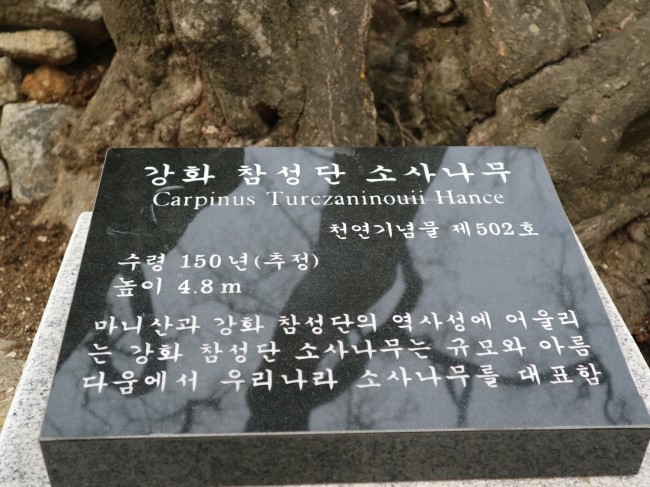 강화 참성단 소사나무
Carpinus Turczaninouii Hance
천연기념물 제502호
수령 150년(추정)
높이 4.8m
마니산과 강화 참성단의 역사성에 어울리
는 강화 참성단 소사나무는 규모와 아름
다움에서 우리나라 소사나무를 대표함